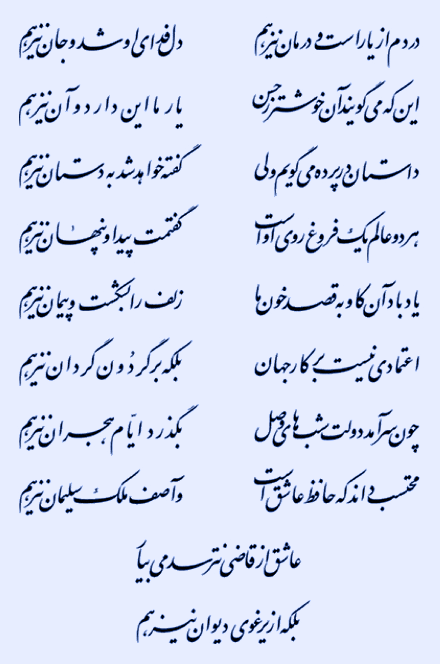 دردم از یار است و درمان نیز هم دل فدای او شد و جان نیز هم
این که می‌گویند آن خوشتر ز حسن یار ما این دارد و آن نیز هم
داستان در پرده می‌گویم ولی گفته خواهد شد به دستان نیز هم
هر دو عالم یک فروغ روی اوست گفتمت پیدا و پنهان نیز هم
یاد باد آن کاو به قصد خون ما زلف را بشکست و پیمان نیز هم
اعتمادی نیست بر کار جهان بلکه بر گردون گردان نیز هم
چون سرآمد دولت شب‌های وصل بگذرد ایام هجران نیز هم
محتسب داند که حافظ عاشق است وآصف ملک سلیمان نیز هم
عاشق از قاضی نترسد می بیار
بلکه از یرغوی دیوان نیز هم